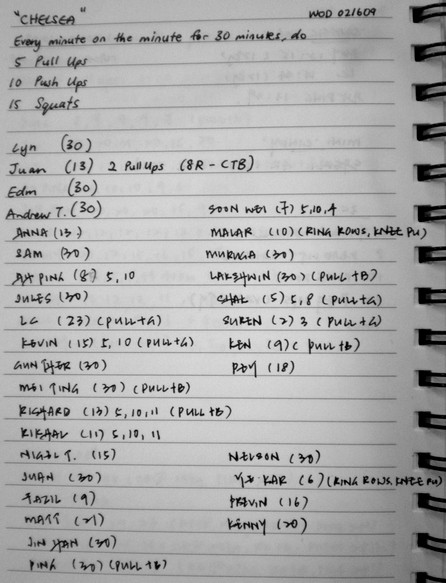 "CHELSEA" WOD 021609
Every minute on the minute for 30 minutes, do
5 Pull Ups
10 Push Ups
15 Squats
Lyn (30)
Juan (13) 2 Pull Ups (8R - CTB)
Edm (30)
Andrew T. (30) SOON WEI (7) 5,10,4
ANNA (13) MALAR (10) (RING ROWS, KNEE PU)
SAM (30) MURUGA (30)
AH PING (8) 5, 10 LAKSHWIN (30) (PULL+B)
JULES (30) SHAL (5) 5,8 (PULL+G)
LC (23) (PULL+G) SUREN (2) 3 (PULL+G)
KEVIN (15) 5, 10 (PULL+G) KEN (9) (PULL+B)
GUNTHER (30) REY (18)
MEI TING (30) (PULL+B)
RICHARD (13) 5, 10, 11 (PULL+B)
RISHAL (11) 5, 10, 11
NIGEL T. (15) NELSON (30)
JUAN (30) KAR (6) (RING ROWS, KNEE PU)
FAZIL (9) PREVIN (16)
MATT (21) KENNY (20)
JIN HAN (30)
PING (30) (PULL+B)